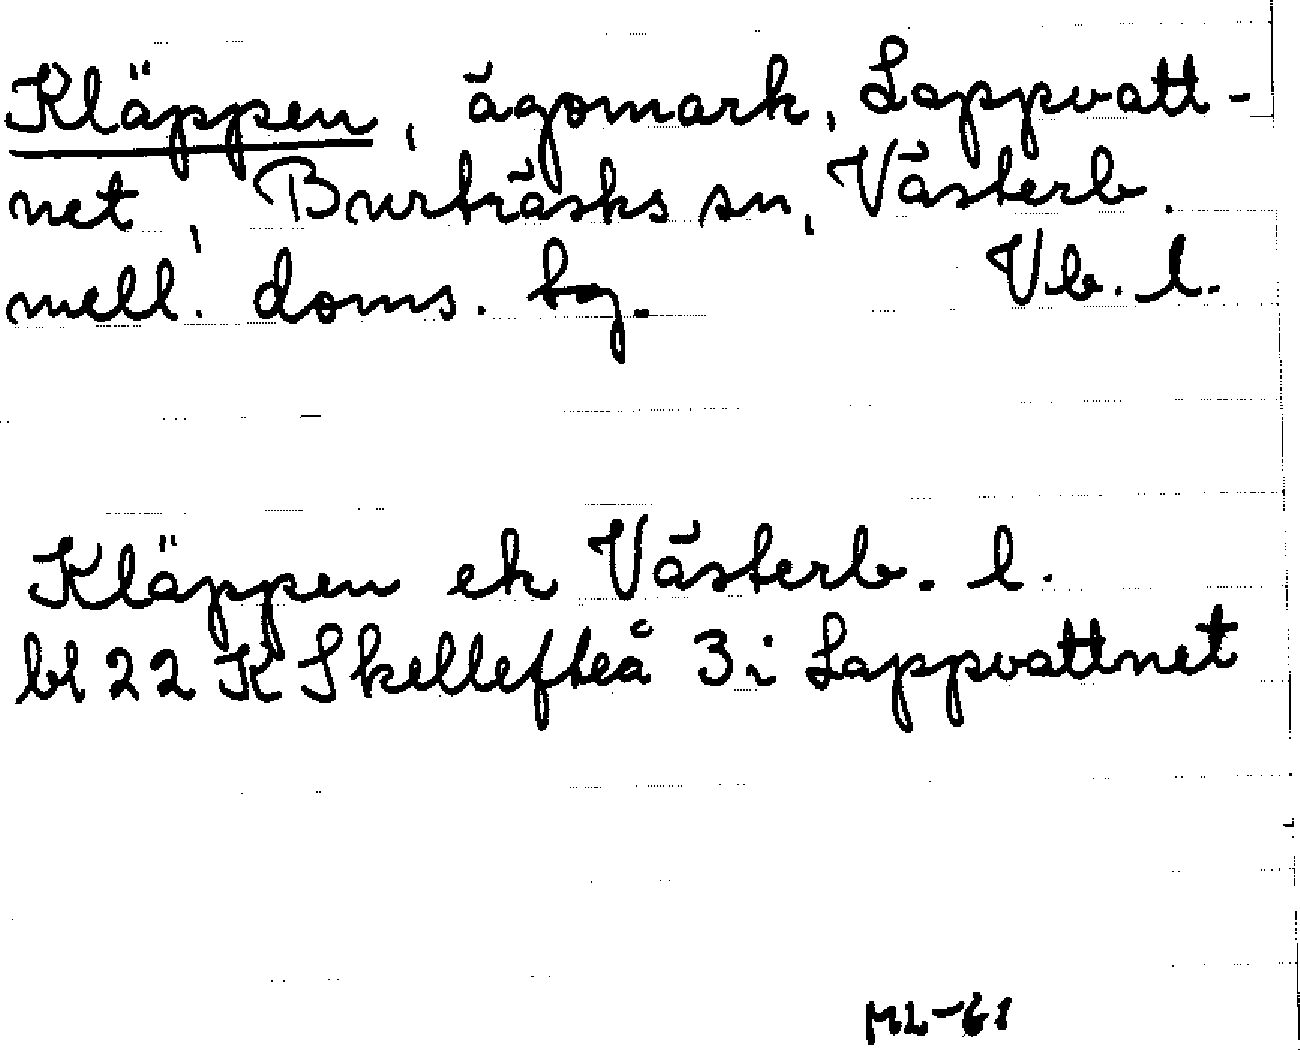 Kläppen, ägomark, Lappvatt-
net, Burträsks sn, Västerb.
mell. doms. bg. Vb. l.
Kläppen ek Västerb. l.
bl 22 K Skellefteå 3i Lappvattnet
ML-61